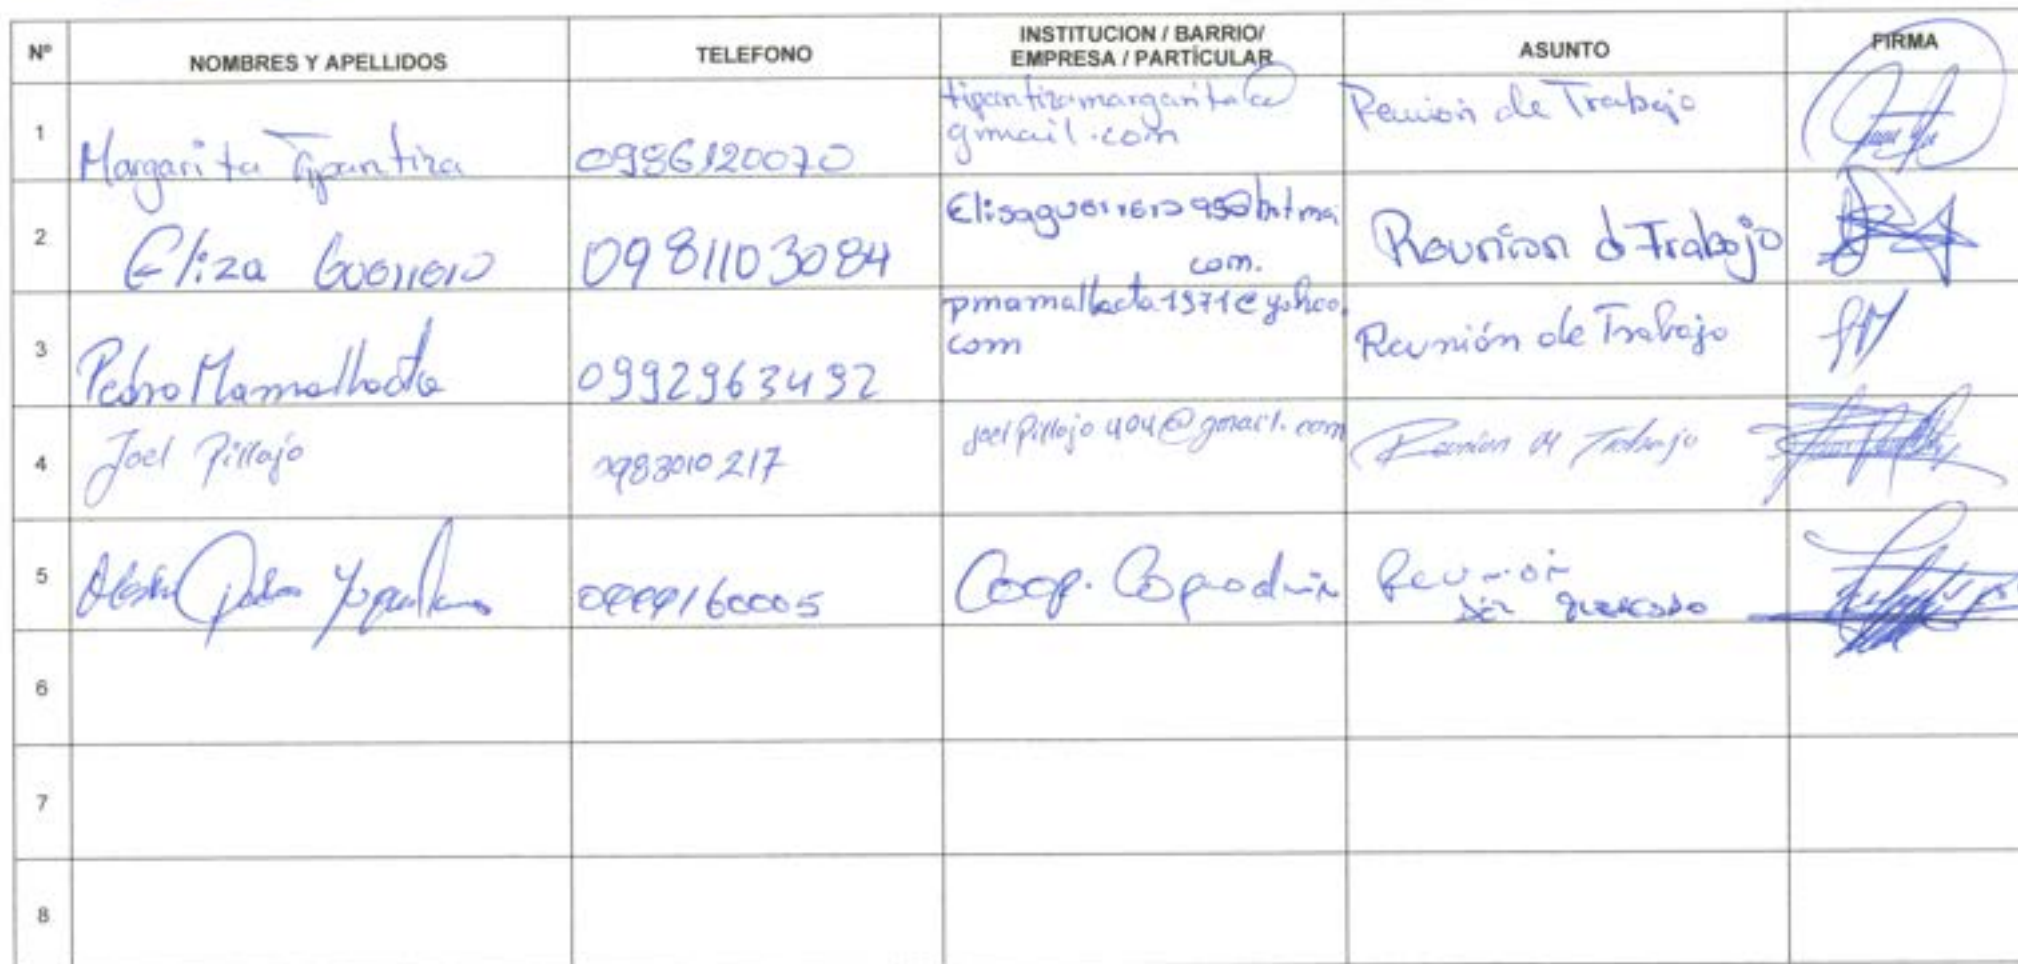 Nº NOMBRES Y APELLIDOS TELEFONO INSTITUCION / BARRIO/ EMPRESA / PARTÍCULAR ASUNTO FIRMA
1 Margarita Tipantiza 0986120070 tipantizamargarita@ gmail.com Reunion de Trabajo
2 Eliza Guerrero 0981103084 Elisaguerrero95@hotmai com. Reunion d Trabajo
3 Pedro Mamallacta 0992963492 pmamallacta1971@yahoo. com Reunión de Trabajo
4 Joel Pillajo 0983010217 joelpillajo404@gmail.com Reunion de Trabajo
5 0999160005 Coop. Reunion
6
7
8